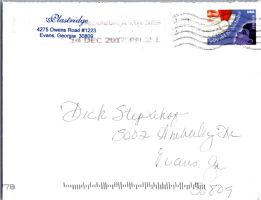 Plastridge
4275 Owens Road #1223
Evans, Georgia 30809
DEC 2007 PM 2 L
USA
Dick
3002 Amberley Dr
Evans, Ga
30809